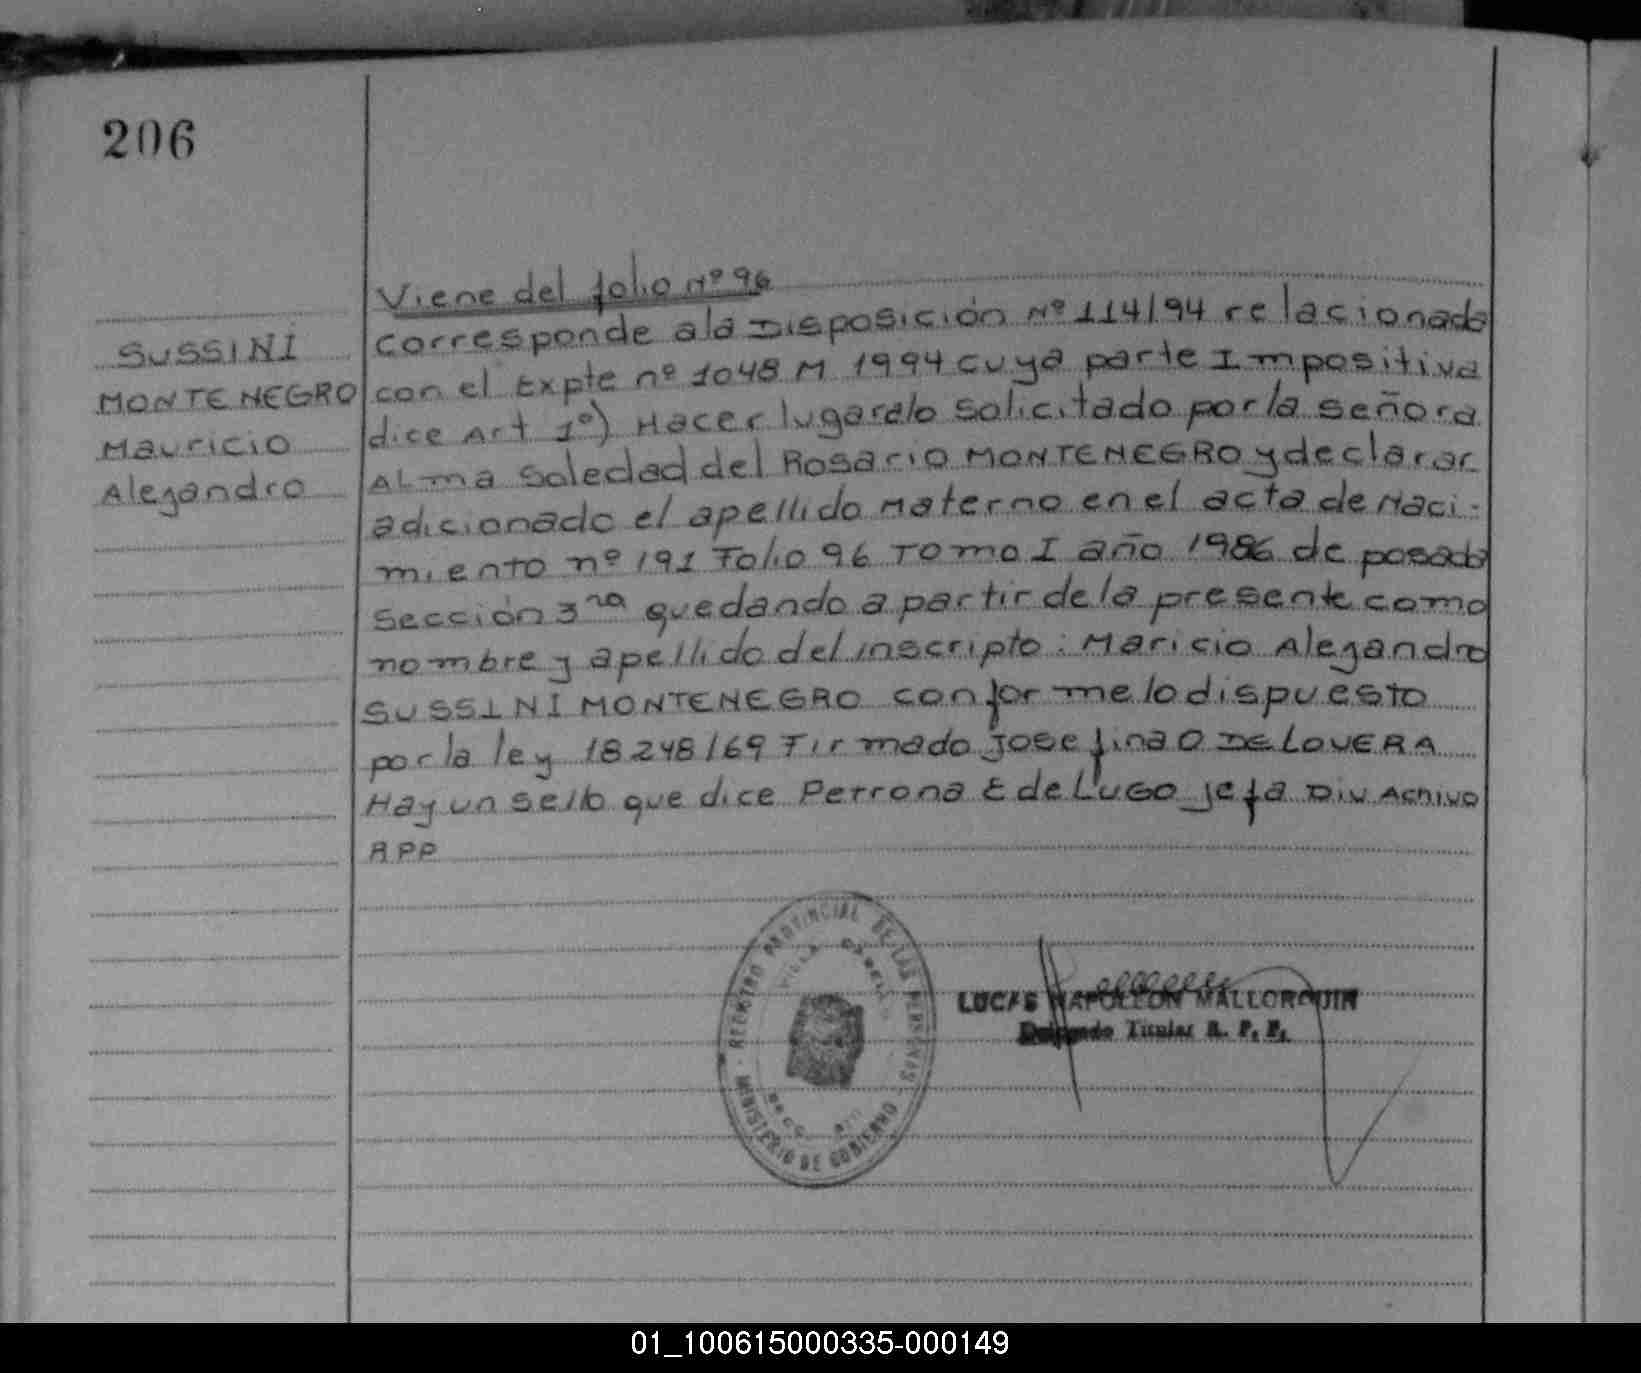 206
Viene del folio Nº 96
corresponde a la Disposición Nº 114/94 relacionado
con el Expte nº 1048 M 1994 cuya parte Impositiva
dice Art 1º) Hacer lugar alo solicitado por la señora
ALma Soledad del Rosario MONTENEGRO y declarar
adicionado el apellido Materno en el acta de Naci-
miento nº 191 Folio 96 Tomo I año 1986 de posado
Sección 3ra quedando a partir de la presente como
nombre y apellido del inscripto: Maricio Alejandro
SUSSINI MONTENEGRO conforme lo dispuesto
por la ley 18.248/69 Firmado Josefina O DE LOVERA
Hay un sello que dice Petrona E de LUGO Jefa Div Achivo
RPP
SUSSINI
MONTENEGRO
Mauricio
Alejandro
REGISTRO PROVINCIAL DE LAS PERSONAS
MINISTERIO DE GOBIERNO
LUCAS NAPOLEON MALLORQUIN
Delegado Titular R. P. P.
01_100615000335-000149